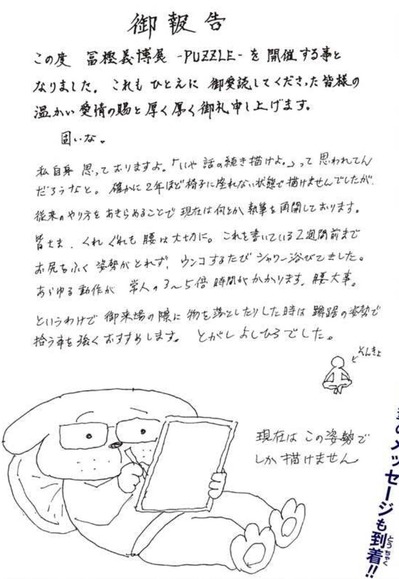 御報告
この度 冨樫義博展 -PUZZLE- を開催する事と
なりました。これもひとえに御愛読してくださった皆様の
温かい愛情の賜と厚く厚く御礼申し上げます。
固いな。
私自身思っておりますよ。「いや話の続き描けよ。」って思われてん
だろうなと。確かに2年ほど椅子に座れない状態で描けませんでしたが、
従来のやり方をあきらめることで現在は何とか執筆を再開しております。
皆さま、くれぐれも腰は大切に。これを書いている2週間前まで
お尻をふく姿勢がとれず、ウンコするたびシャワー浴びてました。
あらゆる動作が 常人の3〜5倍時間がかかります。腰大事。
というわけで御来場の際に物を落としたりした時は蹲踞の姿勢で
拾う事を強くおすすめします。とがしよしひろでした。
そんきょ
現在はこの姿勢で
しか描けません
のメッセージも到着!!
とうちゃく